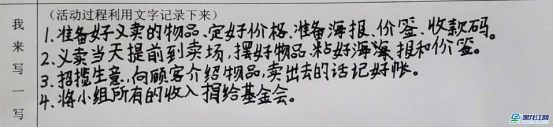 我来写一写
(活动过程利用文字记录下来)
1.准备好义卖的物品、定好价格、准备海报、价签、收款码。
2.义卖当天提前到卖场,摆好物品,粘好海海报和价签。
3.招揽生意,向顾客介绍物品,卖出去的话记好帐。
4.将小组所有的收入捐给基金会。
黑龙江网